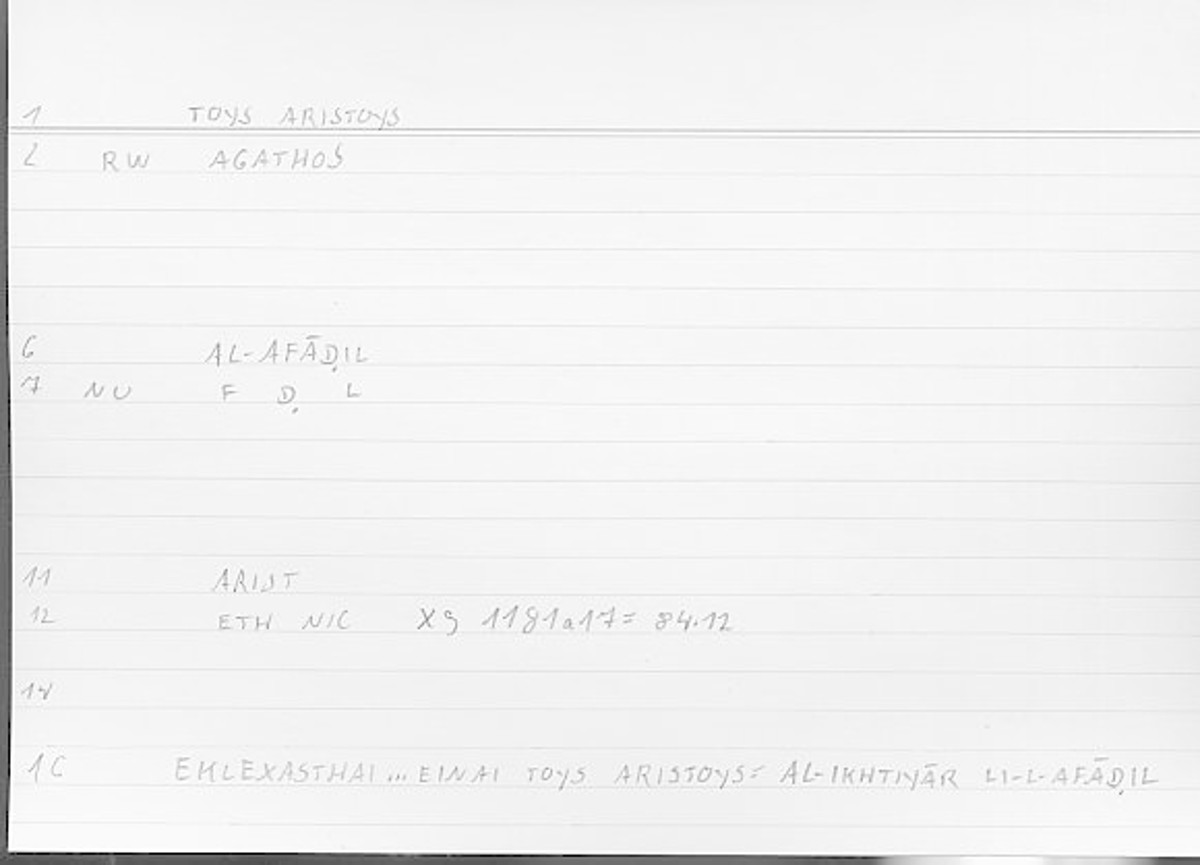 1 TOYS ARISTOYS
2 RW AGATHOS
6 AL-AFĀḌIL
7 NU F Ḍ L
11 ARIST
12 ETH NIC X9 1181a17= 84.12
14
1C EKLEXASTHAI...EINAI TOYS ARISTOYS= AL-IKHTIYĀR LI-L-AFĀḌIL